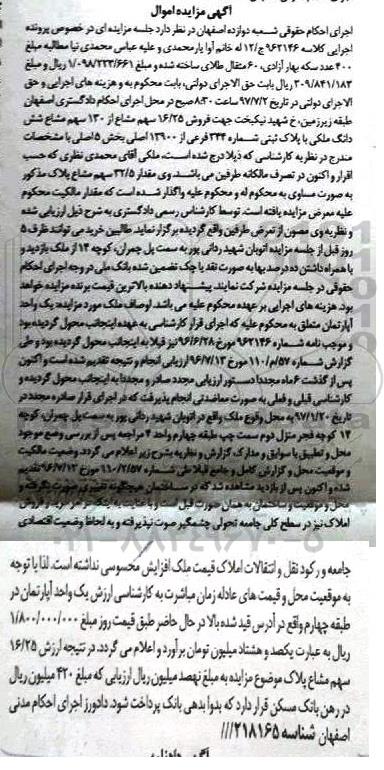 آگهی مزایده اموال
اجرای احکام حقوقی شعبه دوازده اصفهان در نظر دارد جلسه مزایده ای در خصوص پرونده
اجرایی کلاسه ۹۶۲۱۴۶ ج/۱۲ له خانم آوا یارمحمدی و علیه عباس محمدی نیا مطالبه مبلغ
۴۰۰ عدد سکه بهار آزادی، ۶۰ مثقال طلای ساخته شده و مبلغ ۱/۰۹۸/۲۲۳/۶۶۱ ریال و مبلغ
۳۰۹/۸۴۱/۱۸۳ ریال بابت حق الاجرای دولتی، بابت محکوم به و هزینه های اجرایی و حق
الاجرای دولتی در تاریخ ۹۷/۷/۲ ساعت ۸:۳۰ صبح در محل اجرای احکام دادگستری اصفهان
طبقه زیرزمین، خ شهید نیکبخت جهت فروش ۱۶/۲۵ سهم مشاع از ۱۳۰ سهم مشاع شش
دانگ ملکی با پلاک ثبتی شماره ۳۴۴ فرعی از ۱۳۹۰۰ اصلی بخش ۵ اصلی با مشخصات
مندرج در نظریه کارشناسی که ذیلا درج شده است، ملکی آقای محمدی نظری که حسب
اقرار و اکنون در تصرف مالکانه طرفین می باشد. وی مقدار ۳۲/۵ سهم مشاع پلاک مذکور
به صورت مساوی به محکوم له و محکوم علیه واگذار شده است که مقدار مالکیت محکوم
علیه معرض مزایده یافته است. توسط کارشناس رسمی دادگستری به شرح ذیل ارزیابی شده
و نظریه وی مصون از تعرض طرفین واقع گردیده برگزار نماید. طالبین خرید می توانند ظرف ۵
روز قبل از جلسه مزایده اتوبان شهید ردانی پور به سمت پل چمران، کوچه ۱۴ از ملک بازدید و
با همراه داشتن ده درصد بها به صورت نقد یا چک تضمین شده بانک ملی در وجه اجرای احکام
حقوقی در جلسه مزایده شرکت نمایند. پیشنهاد دهنده بالاترین قیمت برنده مزایده خواهد
بود. هزینه های اجرایی بر عهده محکوم علیه می باشد. اوصاف ملک مورد مزایده: یک واحد
آپارتمان متعلق به محکوم علیه که اجرای قرار کارشناسی به عهده اینجانب محول گردیده بود
و موجب نامه شماره ۹۶۲۱۴۶ مورخ ۹۶/۶/۲۸ نیز قبلا به اینجانب محول گردیده بود و طی
گزارش شماره ۵۷/م/۱۱۰ مورخ ۹۶/۷/۱۳ ارزیابی انجام و نتیجه تقدیم شده است و اکنون
پس از گذشت ۶ ماه مجددا دستور ارزیابی مجدد صادر و مجددا به اینجانب محول گردیده و
کارشناسی قبلی و فعلی به صورت معاضدتی انجام پذیرفت که در اجرای قرار صادره مجدد در
تاریخ ۹۷/۱/۲۰ به محل وقوع ملک واقع در اتوبان شهید ردانی پور به سمت پل چمران، کوچه
۱۴ کوچه فجر منزل دوم سمت چپ طبقه چهارم واحد ۴ مراجعه پس از بررسی وضع موجود
محل و تطبیق با سوابق و مدارک، گزارش و نظریه بشرح زیر اعلام می گردد. وضعیت مالکیت
و موقعیت محل و گزارش کامل و جامع قبلا طی شماره ۱۱۰/۲/۵۷ مورخ ۹۶/۷/۱۳ تقدیم
شده و اکنون پس از بازدید مشاهده شد که در ساختمان هیچگونه تغییری صورت نگرفته و
محل و موقعیت و ساختمان به همان صورت قبل است و با عنایت به اینکه در امر خرید و فروش
املاک نیز در سطح کلی جامعه تحولی چشمگیر صورت نپذیرفته و به لحاظ وضعیت اقتصادی
جامعه و رکود نقل و انتقالات املاک قیمت ملک افزایش محسوسی نداشته است. لذا با توجه
به موقعیت محل و قیمت های عادله زمان مباشرت به کارشناسی ارزش یک واحد آپارتمان در
طبقه چهارم واقع در آدرس قید شده بالا در حال حاضر طبق قیمت روز مبلغ ۱/۸۰۰/۰۰۰/۰۰۰
ریال به عبارت یکصد و هشتاد میلیون تومان برآورد و اعلام می گردد. در نتیجه ارزش ۱۶/۲۵
سهم مشاع پلاک موضوع مزایده به مبلغ نهصد میلیون ریال ارزیابی که مبلغ ۴۲۰ میلیون ریال
در رهن بانک مسکن قرار دارد که بدوا بدهی بانک پرداخت شود. دادورز اجرای احکام مدنی
اصفهان شناسه ۲۱۸۱۶۵///